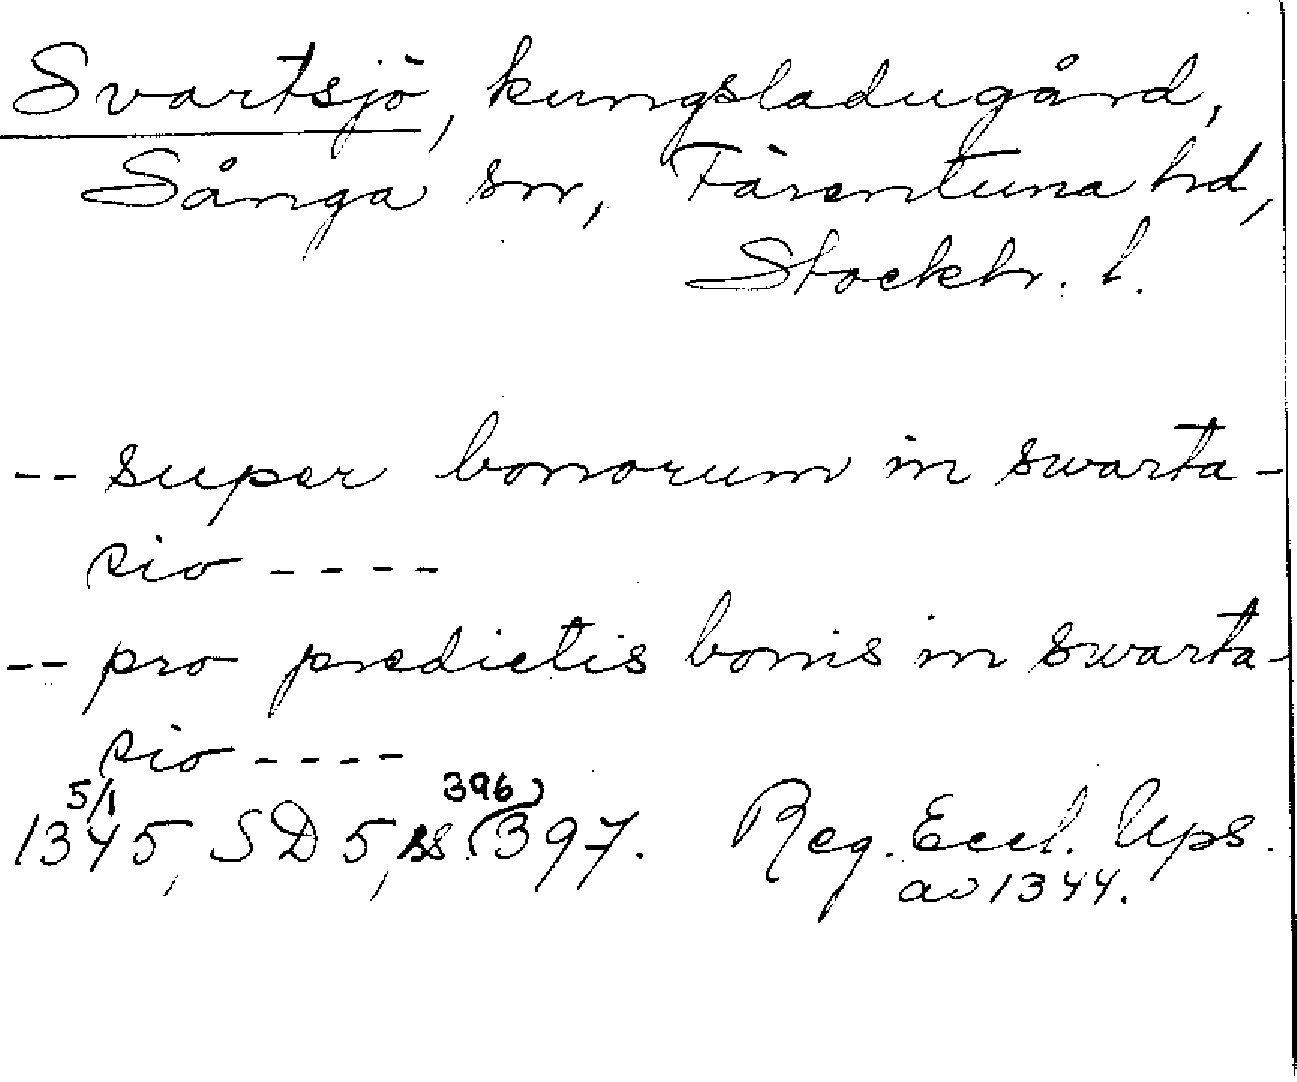 Svartsjö, kungsladugård,
Sånga sn, Färentuna hd,
Stockh. l.
-- super bonorum in swarta-
sio ----
-- pro predictis bonis in swarta-
sio ----
1345 5/1, SD 5, s. (396) 397. Reg. Eccl. Ups.
av 1344.